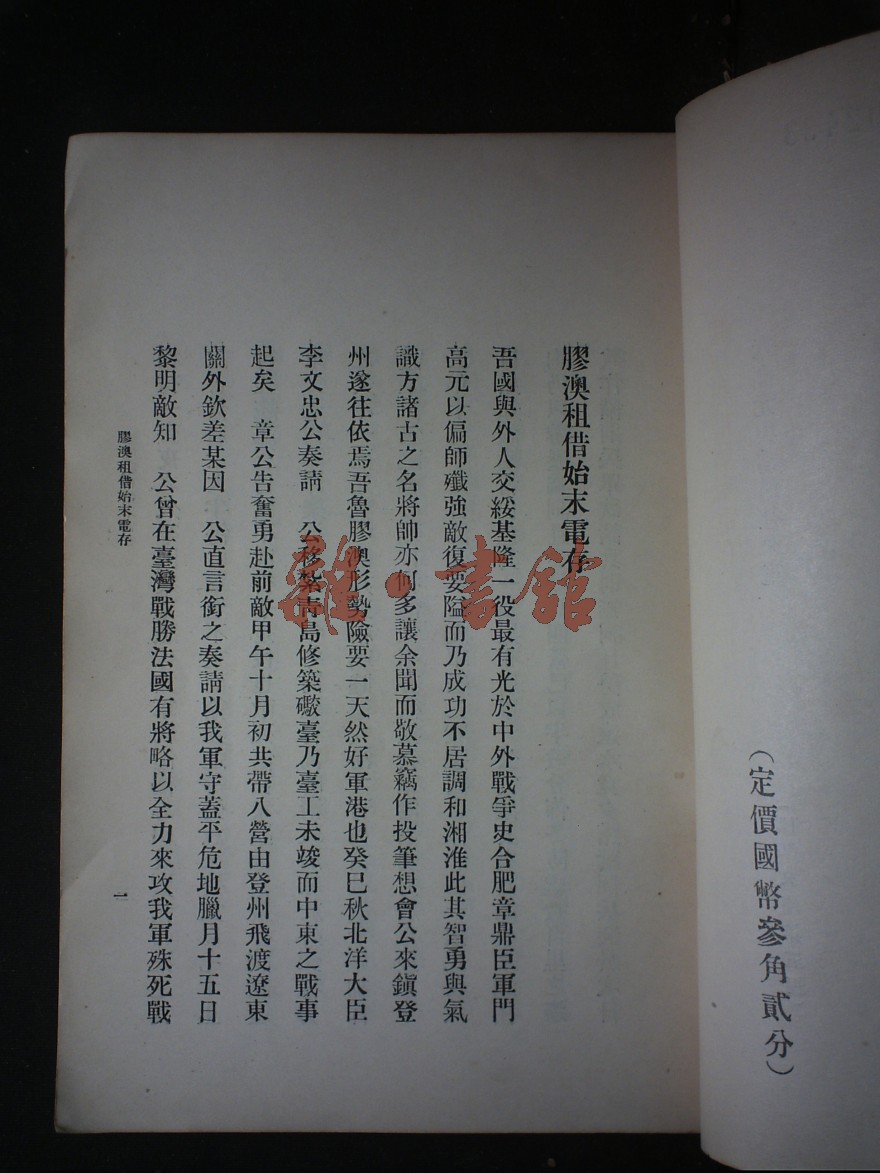 （定價國幣參角貳分）
膠澳租借始末電存
吾國與外人交綏基隆一役最有光於中外戰爭史合肥章鼎臣軍門
高元以偏師殲強敵復要隘而乃成功不居調和湘淮此其智勇與氣
識方諸古之名將帥亦何多讓余聞而敬慕竊作投筆想會公來鎭登
州遂往依焉吾魯膠澳形勢險要一天然好軍港也癸巳秋北洋大臣
李文忠公奏請　公移紮靑島修築礮臺乃臺工未竣而中東之戰事
起矣　章公吿奮勇赴前敵甲午十月初共帶八營由登州飛渡遼東
關外欽差某因　公直言銜之奏請以我軍守蓋平危地臘月十五日
黎明敵知　公曾在臺灣戰勝法國有將略以全力來攻我軍殊死戰
膠澳租借始末電存
一
雜·書館